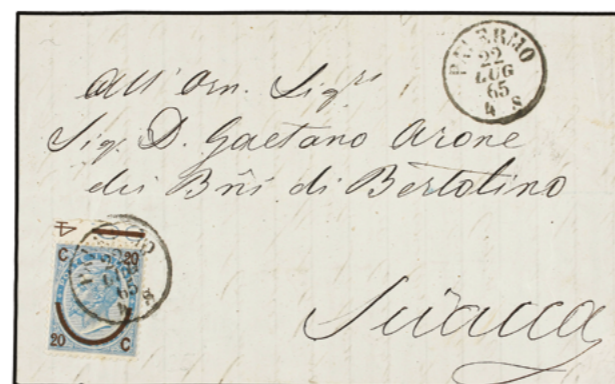 PALERMO
22
LUG
65
4 S
All' Orn. Sigre
Sig. D. Gaetano Arone
dei Bñi di Bertolino
Sciacca
4
C 20
22
LUG
65
20 C